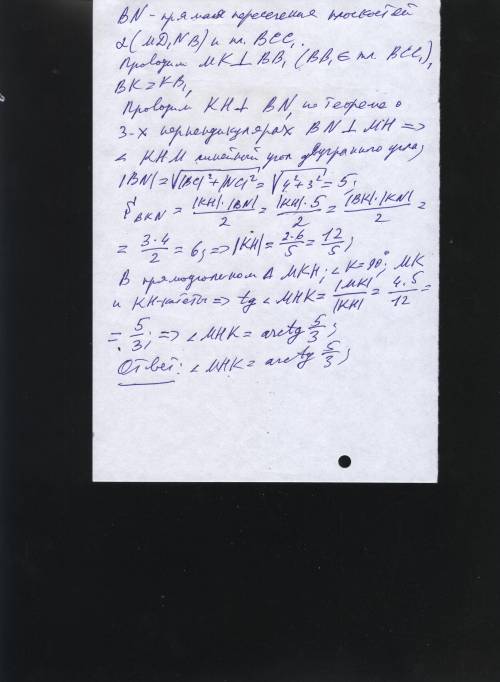 BN - прямая пересечения плоскостей
α(MD₁NB) и пл. BCC₁.
Проводим MK⊥BB₁ (BB₁ ∈ пл. BCC₁),
BK=KB₁
Проводим KH⊥BN, по теореме о
3-х перпендикулярах BN⊥MH =>
∠ KHM линейный угол двугранного угла;
|BN|=√|BC|²+|NC|²=√4²+3²=5;
S BKN = |KH|·|BN|/2 = |KH|·5/2 = |BK|·|KN|/2 =
= 3·4/2 = 6; => |KH| = 2·6/5 = 12/5;
В прямоугольном Δ MKH; ∠K=90°; MK
и KH-катеты => tg ∠MHK = |MK|/|KH| = 4·5/12 =
= 5/3; => ∠MHK = arctg 5/3;
Ответ: ∠MHK = arctg 5/3;